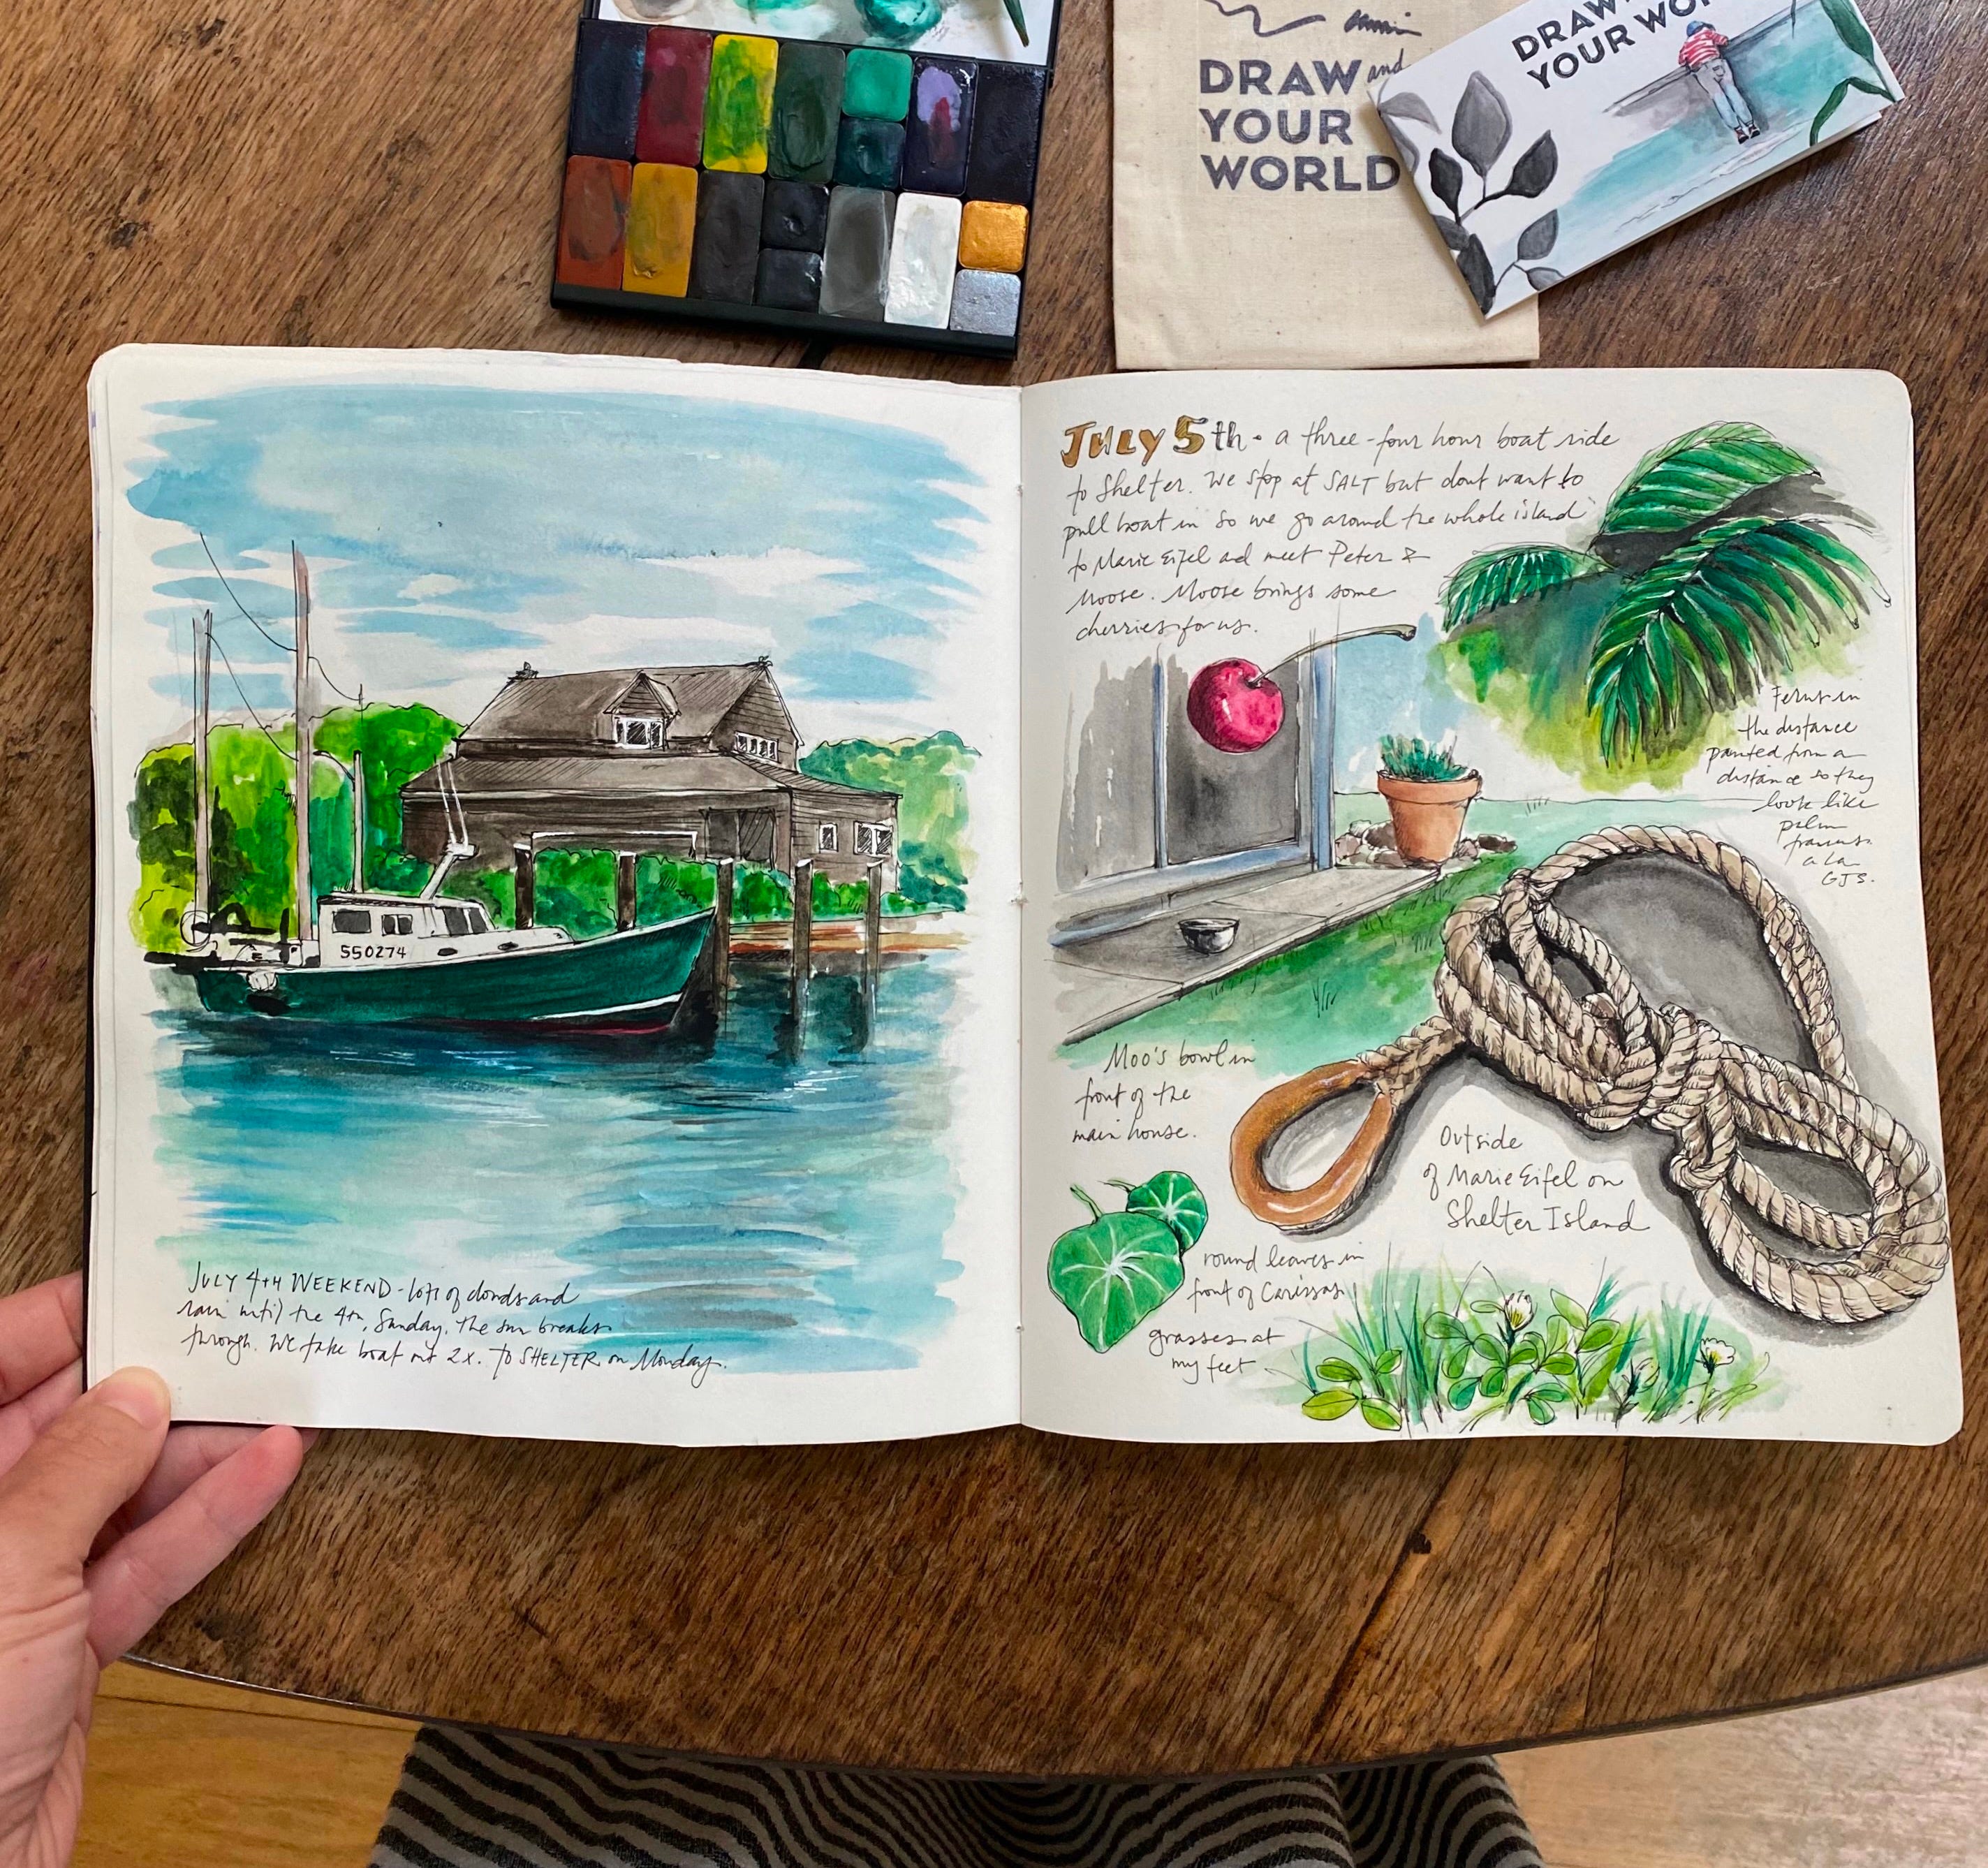 DRAW and
YOUR
WORLD
DRAW
YOUR WOR
JULY 5th. a three-four hour boat ride
to Shelter. We stop at SALT but dont want to
pull boat in so we go around the whole island
to Marie Eifel ad meet Peter &
Moose. Moose brings some
cherries for us.
Ferns in
the distance
painted from a
distance so they
look like
palm
a la
GJS.
550274
Moo's bowl in
front of the
main house.
Outside
of Marie Eifel on
Shelter Island
round leaves in
front of Carissas
grasses at
my feet
JULY 4TH WEEKEND - lots of clouds and
rain until the 4th, Sunday. The sun breaks
through. We take boat out 2x. To SHELTER on Monday.